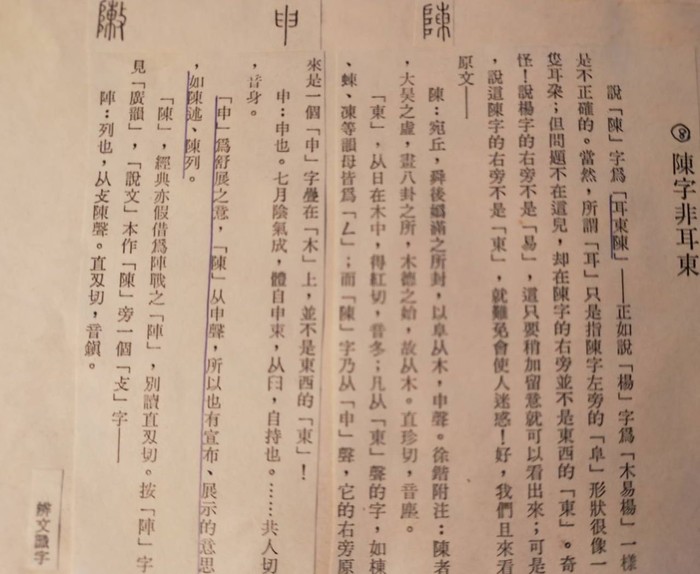 ⑧ 陳字非耳東
說「陳」字爲「耳東陳」——正如說「楊」字爲「木易楊」一樣
是不正確的。當然,所謂「耳」只是指陳字左旁的「阜」形狀很像一
隻耳朶;但問題不在這兒,却在陳字的右旁並不是東西的「東」。奇
怪!說楊字的右旁不是「易」,這只要稍加留意就可以看出來;可是
,說這陳字的右旁不是「東」,就難免會使人迷惑!好,我們且來看
原文——
陳:宛丘,舜後嬀滿之所封,以阜从木,申聲。徐鍇附注:陳者
,大昊之虛,畫八卦之所,木德之始,故从木。直珍切,音塵。
「東」,从日在木中,得紅切,音冬;凡从「東」聲的字,如棟
、蝀、凍等韻母皆爲「ㄥ」;而「陳」字乃从「申」聲,它的右旁原
來是一個「申」字疊在「木」上,並不是東西的「東」!
申:申也。七月陰氣成,體自申束,从臼,自持也。……失人切
,音身。
「申」爲舒展之意,「陳」从申聲,所以也有宣布、展示的意思
,如陳述、陳列。
「陳」,經典亦假借爲陣戰之「陣」,別讀直刃切。按「陣」字
見「廣韻」,「說文」本作「陳」旁一個「攴」字——
陣:列也,从攴陳聲。直刃切,音鎮。
辨文識字